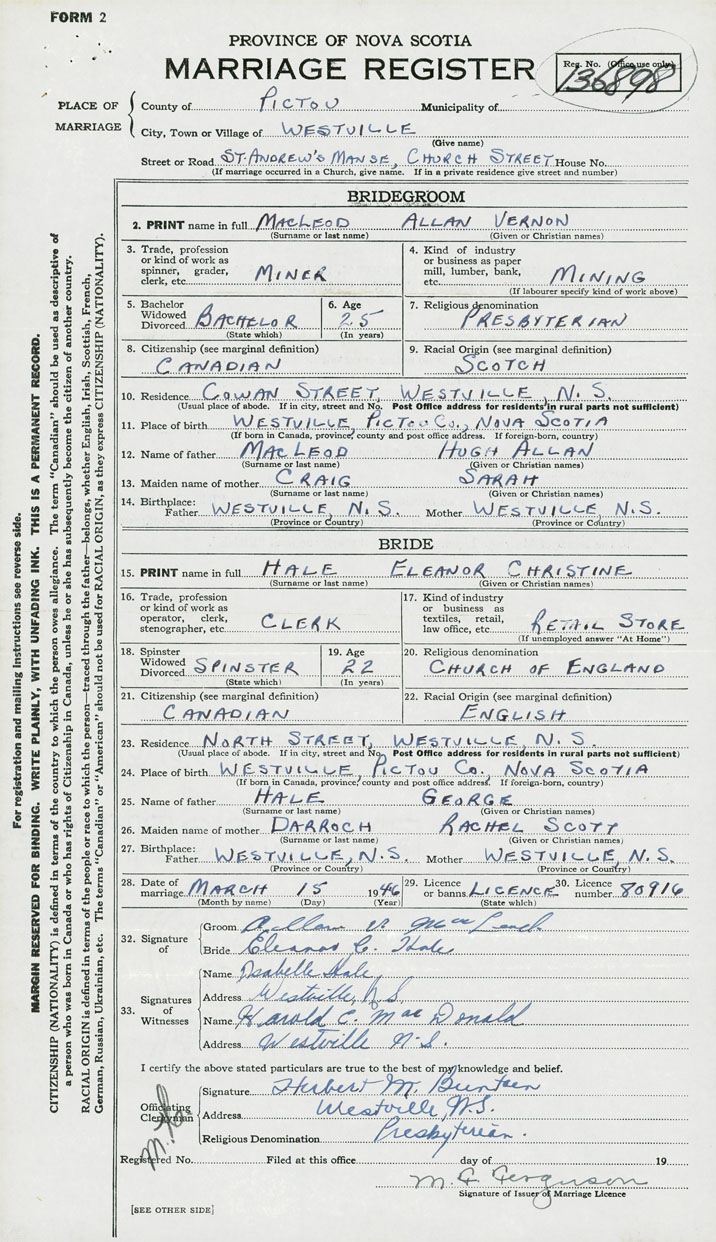 FORM 2
PROVINCE OF NOVA SCOTIA
MARRIAGE REGISTER
Reg. No. (Office use only)
136898
PLACE OF MARRIAGE
County of PICTOU Municipality of
City, Town or Village of WESTVILLE
(Give name)
Street or Road ST. ANDREW'S MANSE, CHURCH STREET House No.
(If marriage occurred in a Church, give name. If in a private residence give street and number)
BRIDEGROOM
2. PRINT name in full MACLEOD ALLAN VERNON
(Surname or last name) (Given or Christian names)
3. Trade, profession or kind of work as spinner, grader, clerk, etc. MINER
4. Kind of industry or business as paper mill, lumber, bank, etc. MINING
(If labourer specify kind of work above)
5. Bachelor Widowed Divorced BACHELOR
(State which)
6. Age 25
(In years)
7. Religious denomination
PRESBYTERIAN
8. Citizenship (see marginal definition)
CANADIAN
9. Racial Origin (see marginal definition)
SCOTCH
10. Residence COWAN STREET, WESTVILLE, N.S.
(Usual place of abode. If in city, street and No. Post Office address for residents in rural parts not sufficient)
11. Place of birth WESTVILLE, PICTOU CO., NOVA SCOTIA
(If born in Canada, province, county and post office address. If foreign-born, country)
12. Name of father MACLEOD HUGH ALLAN
(Surname or last name) (Given or Christian names)
13. Maiden name of mother CRAIG SARAH
(Surname or last name) (Given or Christian names)
14. Birthplace: Father WESTVILLE, N.S. Mother WESTVILLE, N.S.
(Province or Country) (Province or Country)
BRIDE
15. PRINT name in full HALE ELEANOR CHRISTINE
(Surname or last name) (Given or Christian names)
16. Trade, profession or kind of work as operator, clerk, stenographer, etc. CLERK
17. Kind of industry or business as textiles, retail, law office, etc. RETAIL STORE
(If unemployed answer "At Home")
18. Spinster Widowed Divorced SPINSTER
(State which)
19. Age 22
(In years)
20. Religious denomination
CHURCH OF ENGLAND
21. Citizenship (see marginal definition)
CANADIAN
22. Racial Origin (see marginal definition)
ENGLISH
23. Residence NORTH STREET, WESTVILLE, N.S.
(Usual place of abode. If in city, street and No. Post Office address for residents in rural parts not sufficient)
24. Place of birth WESTVILLE, PICTOU CO., NOVA SCOTIA
(If born in Canada, province, county and post office address. If foreign-born, country)
25. Name of father HALE GEORGE
(Surname or last name) (Given or Christian names)
26. Maiden name of mother DARROCH RACHEL SCOTT
(Surname or last name) (Given or Christian names)
27. Birthplace: Father WESTVILLE, N.S. Mother WESTVILLE, N.S.
(Province or Country) (Province or Country)
28. Date of marriage MARCH 15 1946
(Month by name) (Day) (Year)
29. Licence or banns LICENCE
(State which)
30. Licence number 80916
32. Signature of
Groom Allan V. MacLeod
Bride Eleanor C. Hale
33. Signatures of Witnesses
Name Isabelle Hale,
Address Westville, N.S.
Name Harold C. MacDonald
Address Westville N.S.
I certify the above stated particulars are true to the best of my knowledge and belief.
Officiating Clergyman
Signature Herbert M. Buntain
Address Westville, N.S.
Religious Denomination Presbyterian.
Registered No. Filed at this office day of 19
Ferguson
Signature of Issuer of Marriage Licence
[SEE OTHER SIDE]
For registration and mailing instructions see reverse side.
MARGIN RESERVED FOR BINDING. WRITE PLAINLY, WITH UNFADING INK. THIS IS A PERMANENT RECORD.
CITIZENSHIP (NATIONALITY) is defined in terms of the country to which the person owes allegiance. The term "Canadian" should be used as descriptive of
a person who was born in Canada or who has rights of Citizenship in Canada, unless he or she has subsequently become the citizen of another country.
RACIAL ORIGIN is defined in terms of the people or race to which the person—traced through the father—belongs, whether English, Irish, Scottish, French,
German, Russian, Ukrainian, etc. The terms "Canadian" or "American" should not be used for RACIAL ORIGIN, as they express CITIZENSHIP (NATIONALITY).